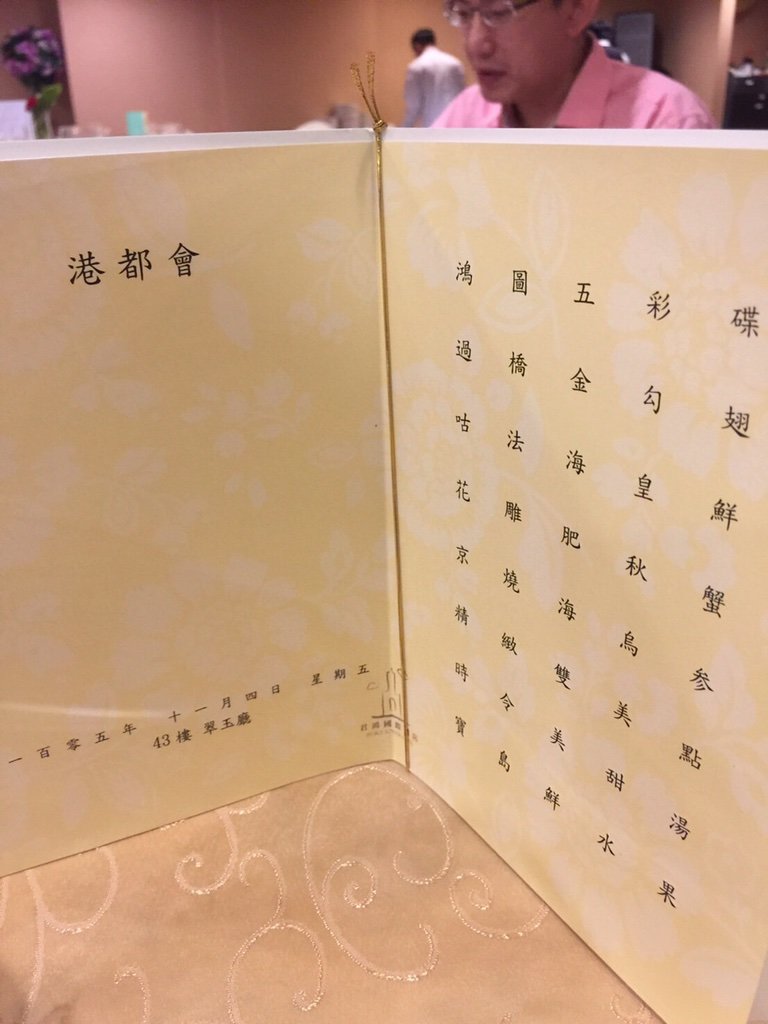 港都會
一百零五年 十一月四日 星期五
43樓 翠玉廳
君鴻國
鴻圖五彩碟
過橋金勾翅
咕法海皇鮮
花雕肥秋蟹
京燒海烏參
精緻雙美點
時令美甜湯
寶島鮮水果